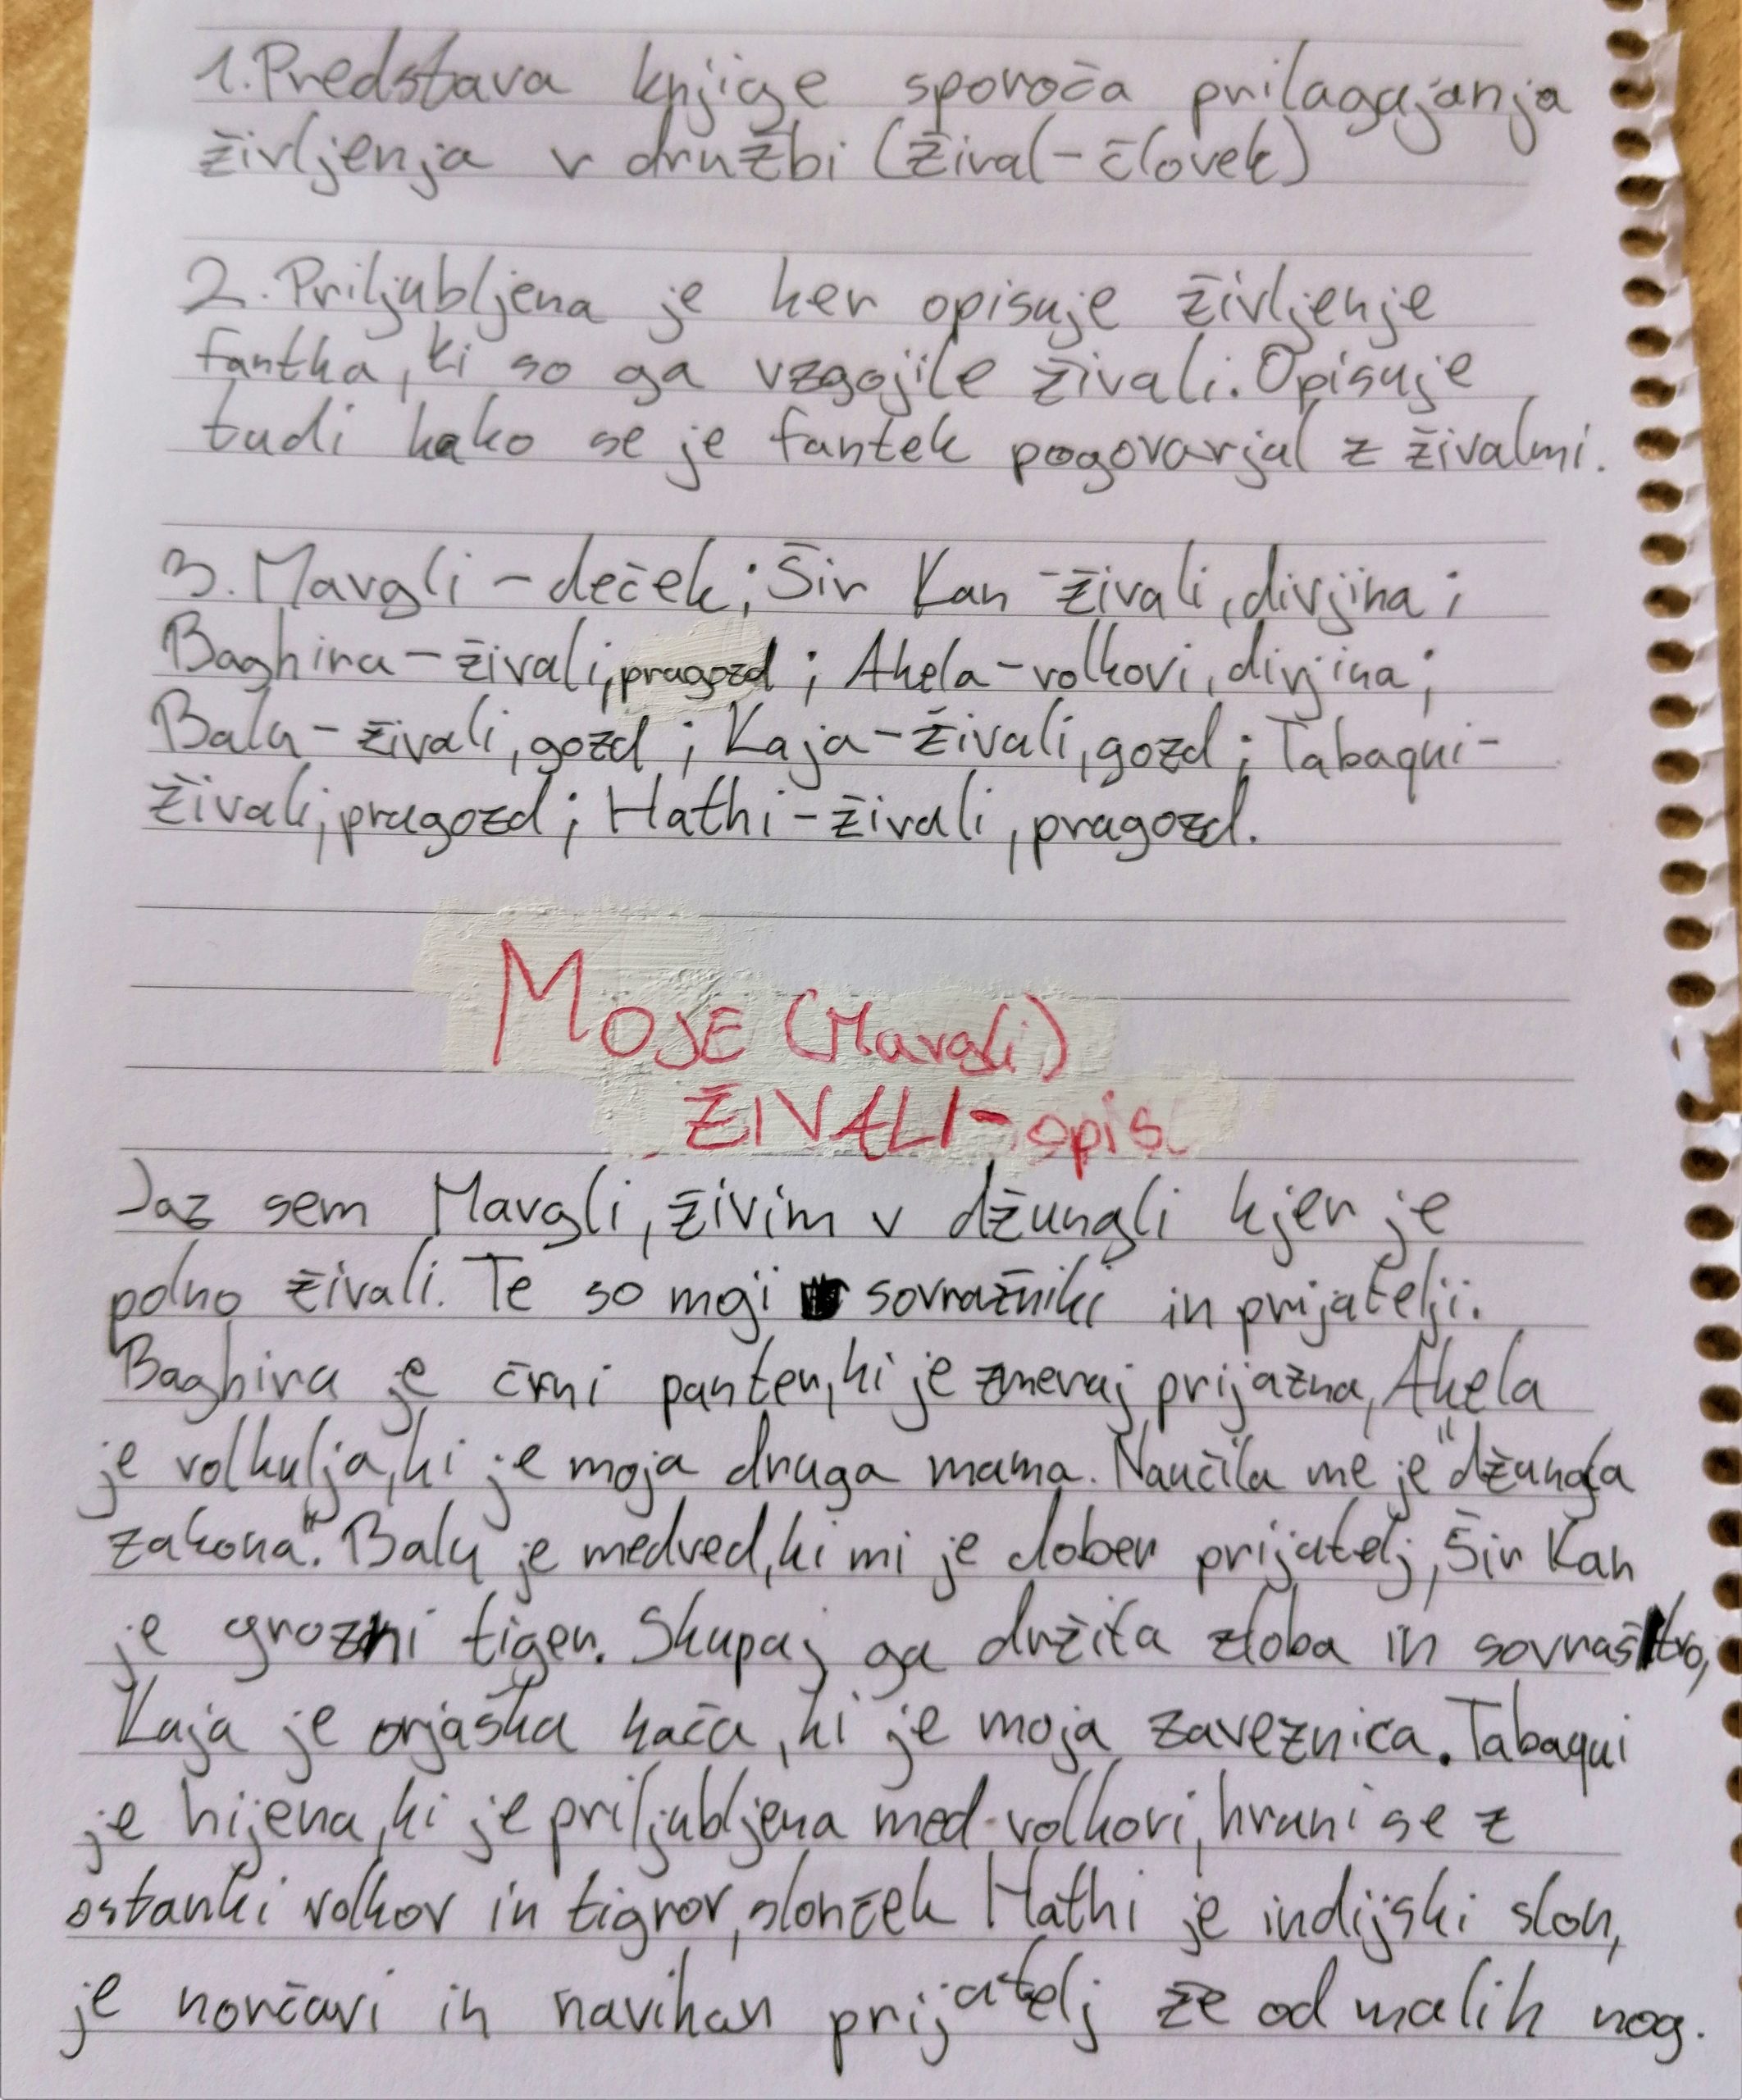 1. Predstava knjige sporoča prilagajanja
življenja v družbi (žival-človek)
2. Priljubljena je ker opisuje življenje
fantka, ki so ga vzgojile živali. Opisuje
tudi kako se je fantek pogovarjal z živalmi.
3. Mavgli - deček; Šir Kan - živali, divjina;
Baghira - živali, pragozd; Akela - volkovi, divjina;
Balu - živali, gozd; Kaja - živali, gozd; Tabaqui -
živali, pragozd; Hathi - živali, pragozd.
MOJE (Mavgli)
ŽIVALI - opis
Jaz sem Mavgli, živim v džungli kjer je
polno živali. Te so moji sovražniki in prijatelji.
Baghira je črni panter, ki je zmeraj prijazna, Akela
je volkulja, ki je moja druga mama. Naučila me je "džungla
zakona". Balu je medved, ki mi je dober prijatelj, Šir Kan
je grozni tiger. Skupaj ga držita zloba in sovraštvo,
Kaja je orjaška kača, ki je moja zaveznica. Tabaqui
je hijena, ki je priljubljena med volkovi, hrani se z
ostanki volkov in tigrov, slonček Hathi je indijski slon,
je norčavi in navihan prijatelj že od malih nog.